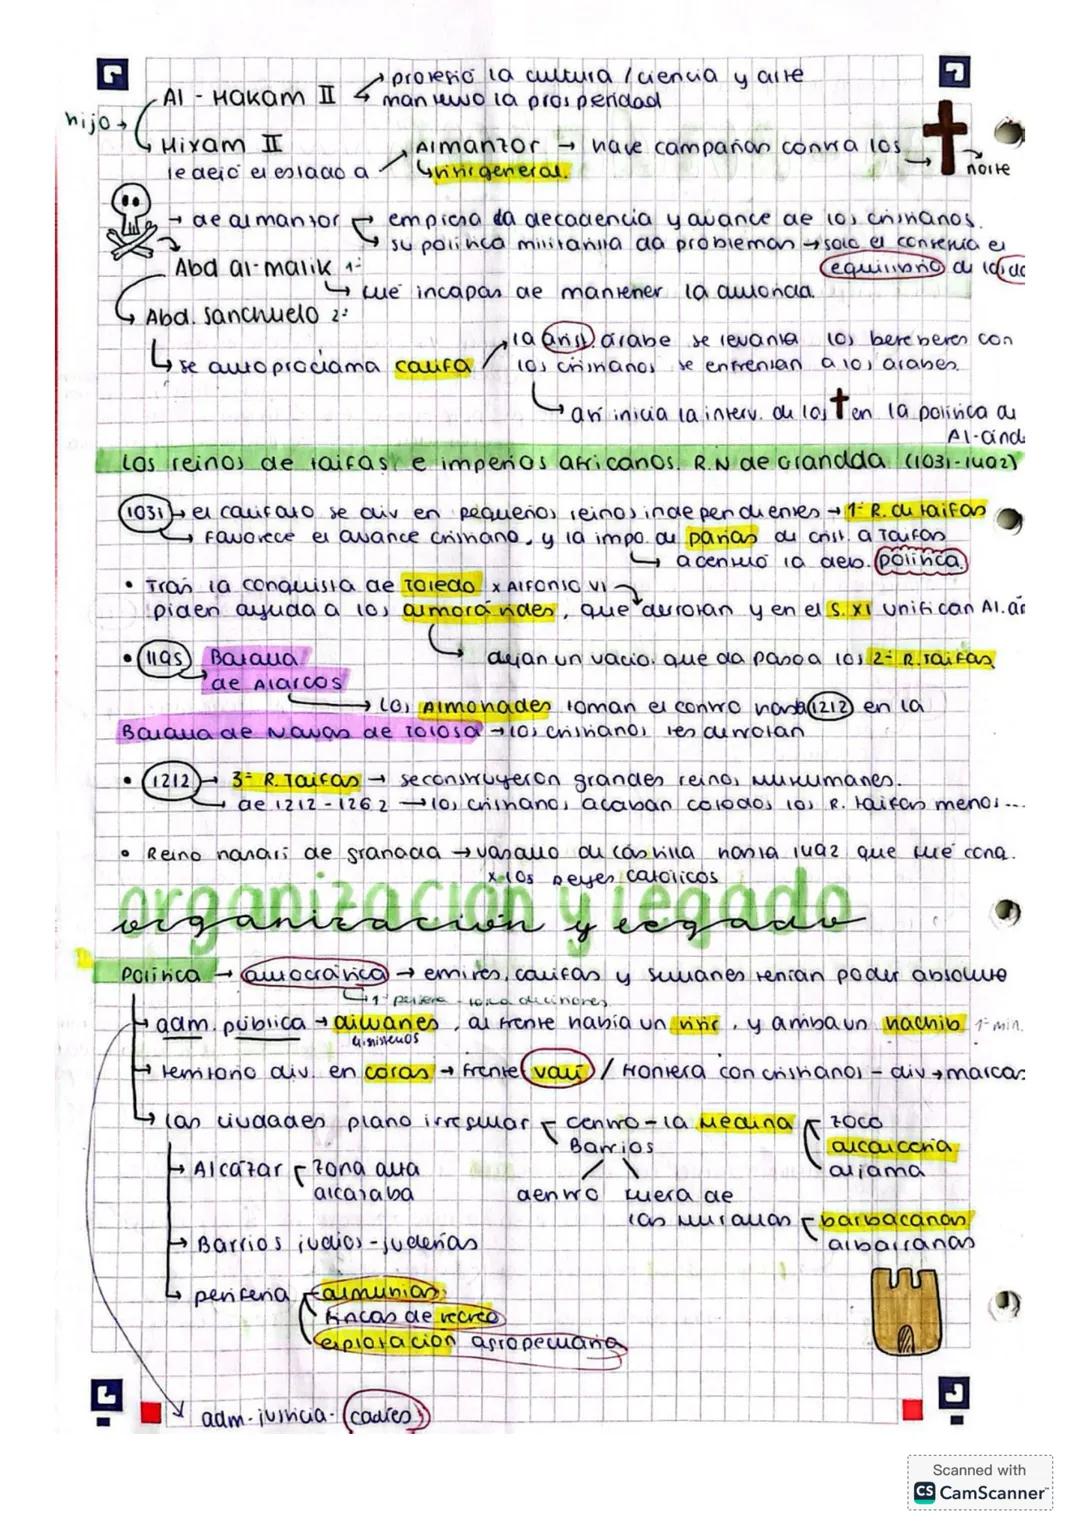 → protegió la cultura / ciencia y arte
Al - Hakam II
mantuvo la prosperidad
hijo →
Hixam II
Almanzor → hace campañas contra los
norte
le dejó el estado a
visir general.
→ de almanzor → empieza la decadencia y avance de los cristianos.
su política militarista da problemas → solo el conseguía el
equilibrio de
Abd al-malik 1º
↳ fué incapas de mantener la autorida.
Abd. Sanchuelo 2º
la arist. árabe se levanta los bereberes con
↳ se autoproclama califa
los cristianos se enfrentan a los árabes.
↳ así inicia la interv. de los † en la política de
Al-And
Los reinos de taifas e imperios africanos. R.N de Grandda (1031-1402)
1031 → el califato se div en pequeños reinos independientes → 1º R. de taifas
↳ favorece el avance cristiano, y la impo. de parias de crist. a Taifas
↳ acentuó la deb. política
• Tras la conquista de Toledo x Alfonso VI
piden ayuda a los almorávides, que derrotan y en el S. XI unifican Al. an
• 1195 Batalla
dejan un vacío. que da paso a los 2º R. Taifas
de Alarcos
→ Los Almohades toman el contro hasta 1212 en la
Batalla de Navas de Tolosa → los cristianos les derrotan
• 1212 → 3º R. Taifas → se construyeron grandes reinos musumanes.
↳ de 1212 - 1262 → los cristianos acaban co todos los R. taifas menos ...
• Reino nasarí de granada → vasallo de castilla hasta 1492 que fué conq.
x los Reyes católicos
organización y legado
Política → autocrática → emires, califas y sultanes tenían poder absoluto
↳ 1º persona - toma decisiones
↳ adm. pública → diwanes, al frente había un visir, y amba un hachib 1º min.
Ministerios
↳ territorio div. en coras → frente valí / frontera con cristianos - div → marcas
↳ las ciudades plano irregular
centro - la Medina
zoco
Barrios
alcaicería
→ Alcázar
zona alta
aljama
alcazaba
dentro
fuera de
las murallas
barbacanas
→ Barrios judíos - juderías
albarranas
↳ periferia
almunias
fincas de recreo
explotación agropecuaria
adm - justicia - cadíes
Scanned with
CS CamScanner